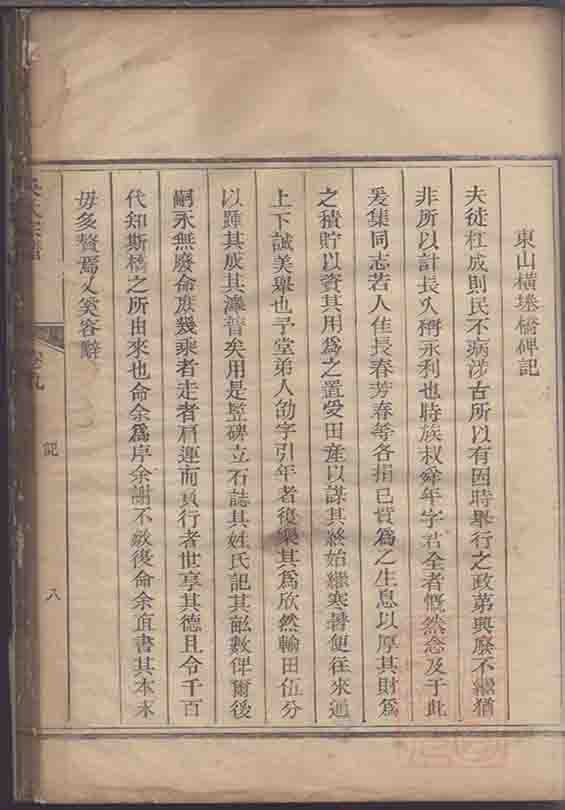 東山橫塂橋碑記
夫徒杠成則民不病涉古所以有因時舉行之政第興廢不繼猶
非所以計長久稱永利也時族叔舜年字君全者慨然念及于此
爰集同志若人佳長春芳春等各捐己貲為之生息以厚其財為
之積貯以資其用為之置受田產以謀其終始繼寒暑便往來通
上下誠美舉也予堂弟人劭字引年者復樂其為欣然輸田伍分
以踵其成其溥普矣用是豎碑立石誌其姓氏記其畝數俾爾後
嗣永無廢命庶幾乘者走者肩運而負行者世享其德且令千百
代知斯橋之所由來也命余為序余謝不敏後命余直書其本末
毋多贅焉又奚容辭
氏宗譜
卷九
記
八